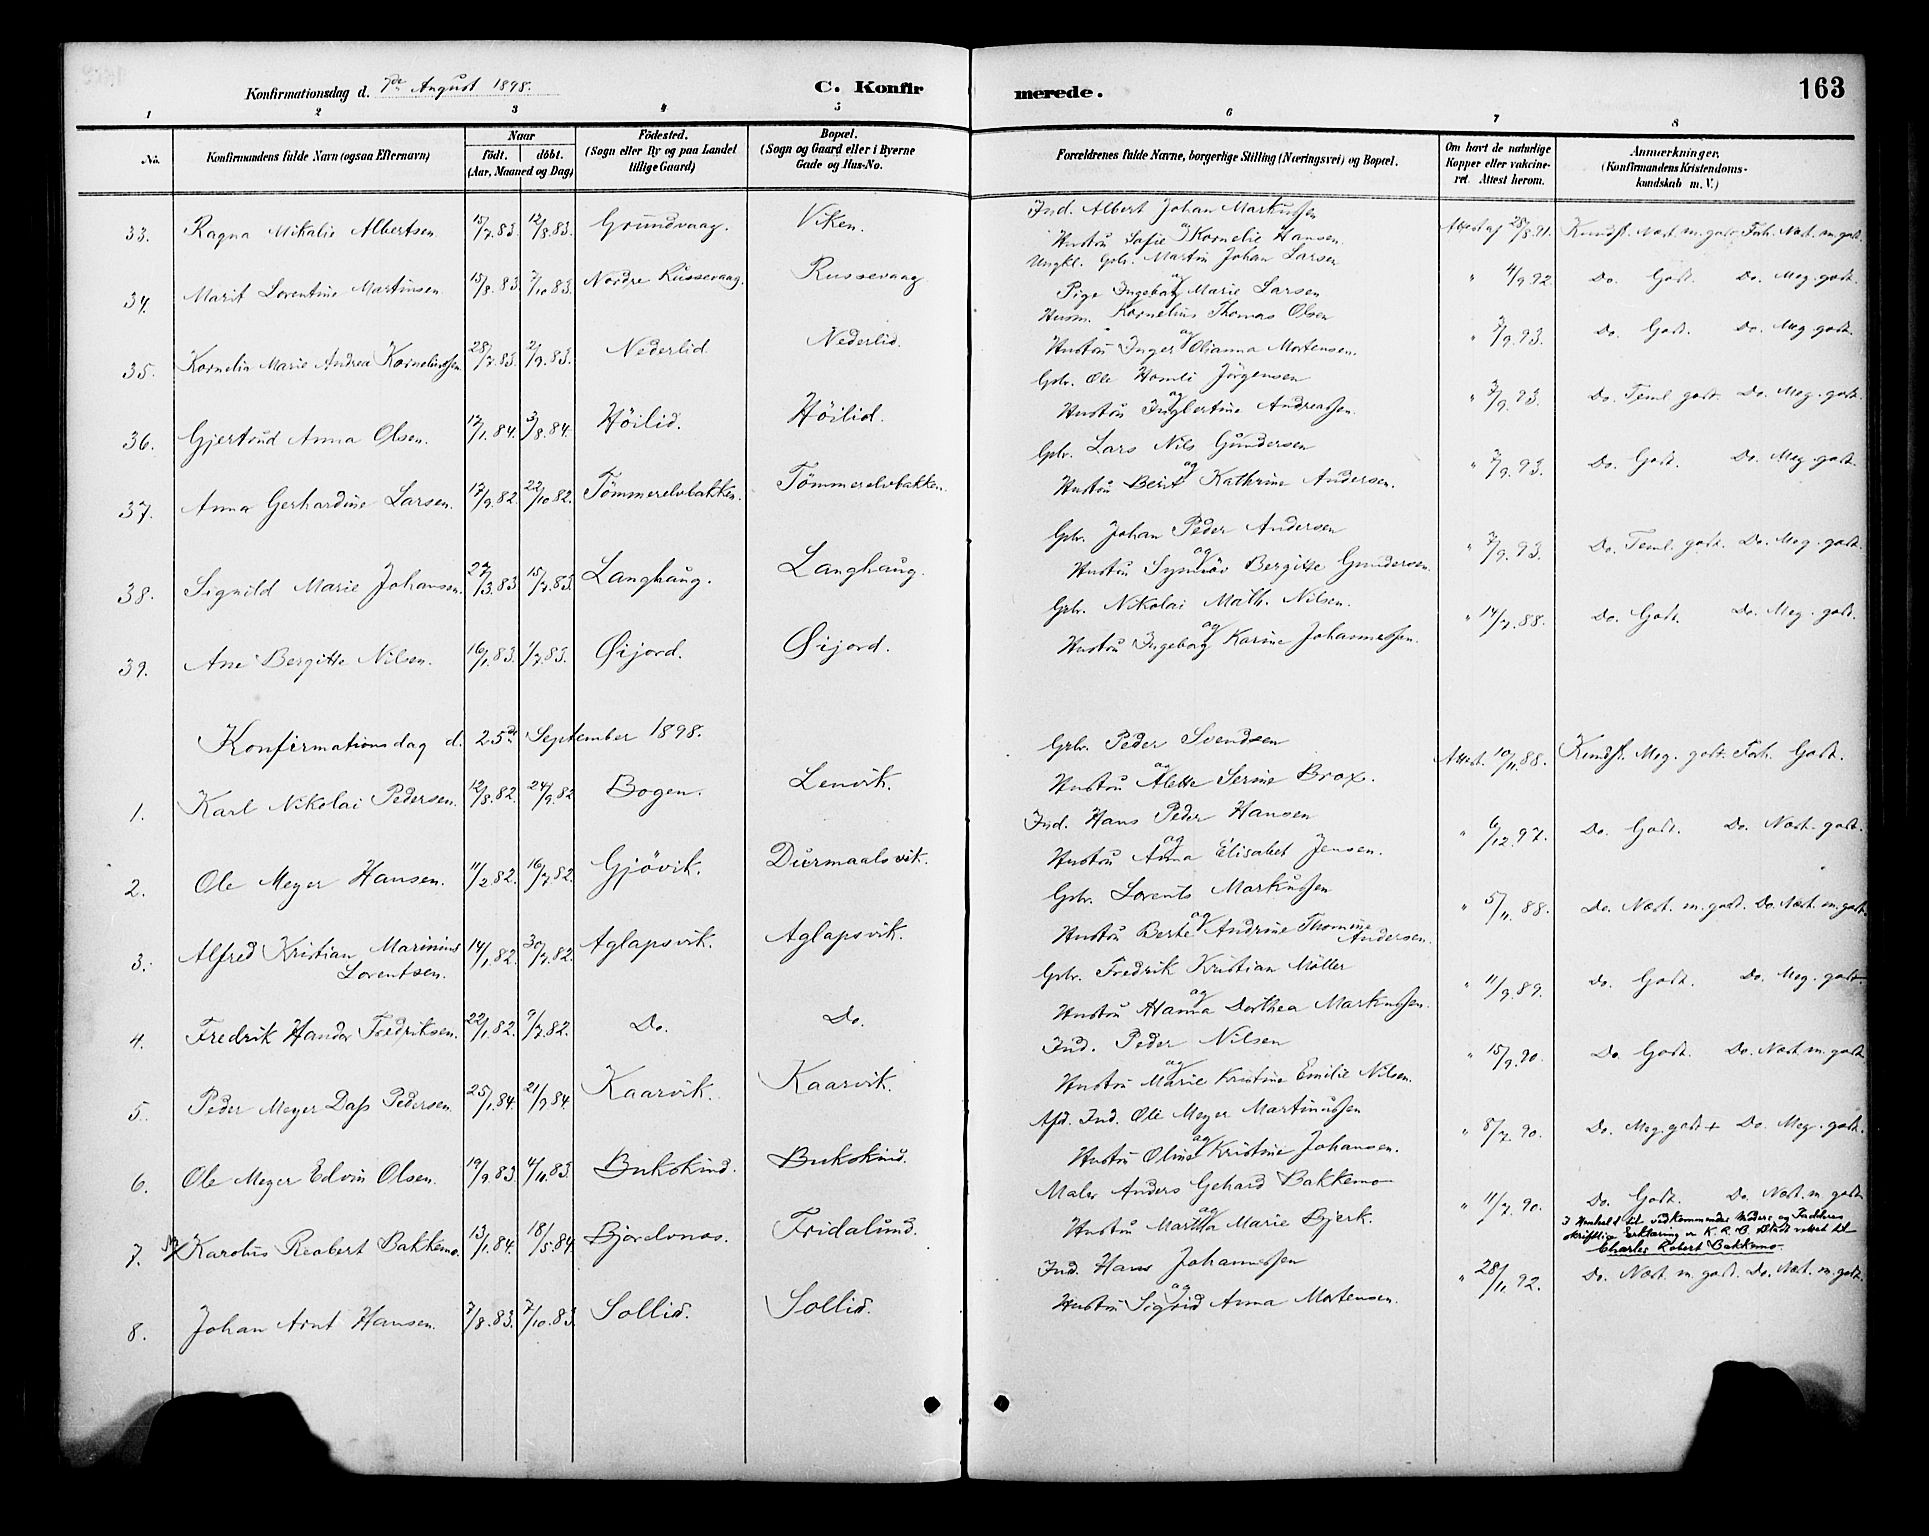 Konfirmationsdag d. 7de August 1898.
C. Konfirmerede.
163
1 2 3 4 5 6 7 8
No.
Konfirmandens fulde Navn (ogsaa Efternavn)
Naar
födt. döbt.
(Aar, Maaned og Dag)
Födested.
(Sogn eller By og paa Landet
tillige Gaard)
Bopæl.
(Sogn og Gaard eller i Byerne
Gade og Hus-No.
Forældrenes fulde Navne, borgerlige Stilling (Næringsvei) og Bopæl.
Om havt de naturlige
Kopper eller vakcine-
ret. Attest herom.
Anmærkninger.
(Konfirmandens Kristendoms-
kundskab m. V.)
33. Ragna Mikalie Albertsen 15/7.83. 12/8.83. Grundvaag. Viken. Ind. Albert Johan Markussen
og
Hustru Sofie Kornelie Hansen. Attest af 28/8.91. Kundsk. Næst. m. godt. Forh. Næst. m. godt.
34. Marit Lorentine Martinsen 15/8.83. 7/10.83. Nordre Russevaag. Russevaag. Ungkl. Gbr. Martin Johan Larsen
og
Pige Ingeborg Marie Larsen " 4/9.92. Do. Godt. Do. Meg. godt.
35. Kornelia Marie Andrea Korneliussen 28/7.83. 2/9.83. Nederlid. Nederlid. Husm. Kornelius Thomas Olsen
og
Hustru Inger Olianna Mortensen. " 3/9.93. Do. Godt. Do. Meg. godt.
36. Gjertrud Anna Olsen. 12/1.84. 3/8.84. Höilid. Höilid. Gbr. Ole Hemli Jörgensen
og
Hustru Inglertine Andreassen. " 3/9.93. Do. Teml. godt. Do. Meg. godt.
37. Anna Gerhardine Larsen. 17/9.82. 22/10.82. Tömmerelvbakken. Tömmerelvbakken. Gbr. Lars Nils Gundersen
og
Hustru Berit Kathrine Andersen. " 3/9.93. Do. Godt. Do. Meg. godt.
38. Signild Marie Johansen. 27/3.83. 15/7.83. Langhaug. Langhaug. Gbr. Johan Peder Andersen
og
Hustru Synnöv Bergitte Gundersen. " 3/9.93. Do. Teml. godt. Do. Meg. godt.
39. Ane Bergitte Nilsen. 16/1.83. 1/7.83. Øijord. Øijord. Gbr. Nikolai Math. Nilsen.
og
Hustru Ingeborg Karine Johannessen. " 14/7.88. Do. Godt. Do. Meg. godt.
Konfirmationsdag d. 25de September 1898.
1. Karl Nikolai Pedersen. 12/8.82. 24/9.82 Bogen. Lenvik. Gbr. Peder Svendsen
og
Hustru Alette Serine Brox. Attest. 10/11.88. Kundsk. Meg. godt. Forh. Godt.
2. Ole Meyer Hansen. 11/2.82. 16/7.82. Gjövik. Durmaalsvik. Ind. Hans Peder Hansen
og
Hustru Anna Elisabet Jensen. " 6/12.97. Do. Godt. Do. Næst. godt.
3. Alfred Kristian Marinius
Lorentsen. 14/1.82. 30/7.82. Aglapsvik. Aglapsvik. Gbr. Lorents Markussen
og
Hustru Berte Andrine Thomine
Andersen. " 5/11.88. Do. Næst. m. godt. Do. Næst. m. godt.
4. Fredrik Hander Fredriksen. 22/1.82. 9/7.82. Do. Do. Gbr. Fredrik Kristian Möller
og
Hustru Hanna Dorthea Markussen. " 11/9.89. Do. Godt. Do. Meg. godt
5. Peder Meyer Dass Pedersen. 25/1.84. 21/9.84. Kaarvik. Kaarvik. Ind. Peder Nilsen
og
Hustru Marie Kristine Emilie Nilsen. " 15/9.90. Do. Godt. Do. Næst m. godt.
6. Ole Meyer Edvin Olsen. 19/9.83. 4/11.83. Bukskind. Bukskind. Afd. Ind. Ole Meyer Martinussen
og
Hustru Oline Kristine Johansen. " 8/7.90. Do. Meg. godt + Do. Meg. godt.
7. Karolus Reabert Bakkemo. 13/1.84. 18/5.84. Bjorelvnes. Fridalund. Maler Anders Gehard Bakkemo
og
Hustru Martha Marie Bjerk. " 11/7.90. Do. Godt. Do. Næst. m. godt
I Henhold til vedkommendes Moders og Fadderes
skriftlige Erklæring er K. R. B. Daab rettet til
Charles Robert Bakkemo.
8. Johan Arnt Hansen. 7/8.83. 7/10.83. Sollid. Sollid. Ind. Hans Johannessen
og
Hustru Sigrid Anna Mortensen. " 28/11.92. Do. Næst. m. godt. Do. Næst. m. godt.